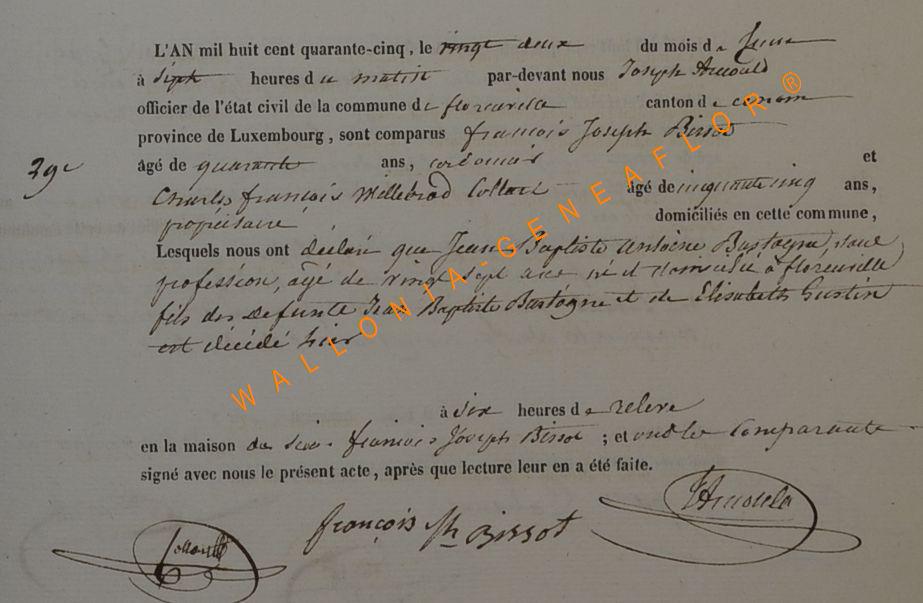 L'AN mil huit cent quarante-cinq, le vingt deux du mois de
à sept heures du matin par-devant nous Joseph Arnould
officier de l'état civil de la commune de florenville canton de
province de Luxembourg, sont comparus françois Joseph Bissot
39e
âgé de quarante ans, cordonnier et
Charles françois Willebrod Collard âgé de cinquante cinq ans,
propriétaire domiciliés en cette commune,
Lesquels nous ont déclaré que Jean Baptiste antoine Bastogne, sans
profession, âgé de vingt sept ans né et domicilié à florenville
fils des defunts Jean Baptiste Bastogne et de Elisabeth Gustin
est décédé hier
à six heures de relevé
en la maison de françois Joseph Bissot ; et ont les Comparants
signé avec nous le présent acte, après que lecture leur en a été faite.
françois Jh Bissot
WALLONIA-GENEAFLOR®